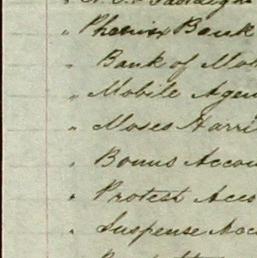 " Phoenix Bank
" Bank of Mob
" Mobile Agen
" Moses Harri
" Bonus Accou
" Protest Acco
" Suspense Acc